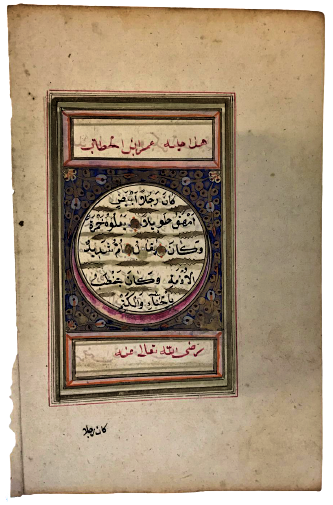 هذا حليه عمر ابن الخطاب
كَانَ رَجُلًا اَبْيَضَ
اَمْهَقَ طَوِيلًا يَعْلُوهُ حُمْرَةٌ
وَكَانَ
وَكَانَ يَخْضِبُ
بِالْحِنَّاءِ وَالْكَتَمِ
رضى الله تعالى عنه
كان رجلا